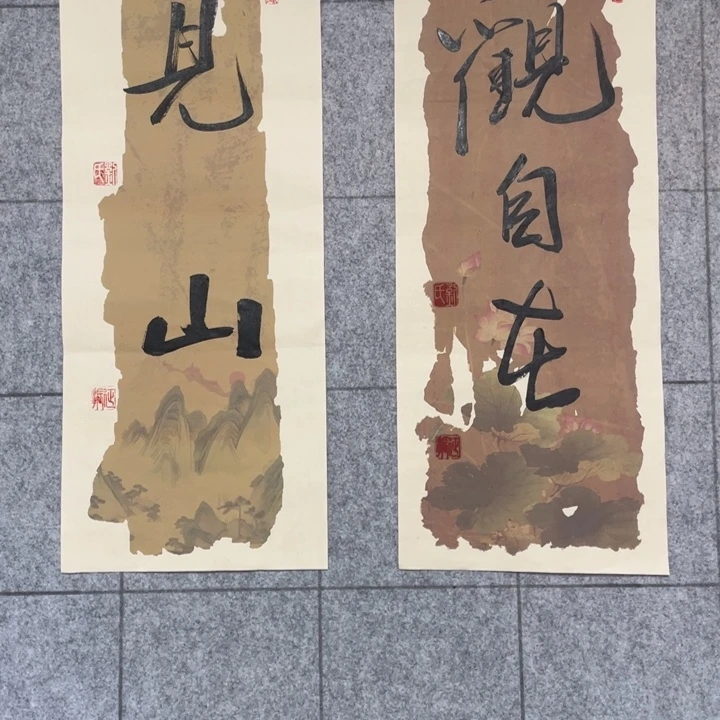 觀自在
見山